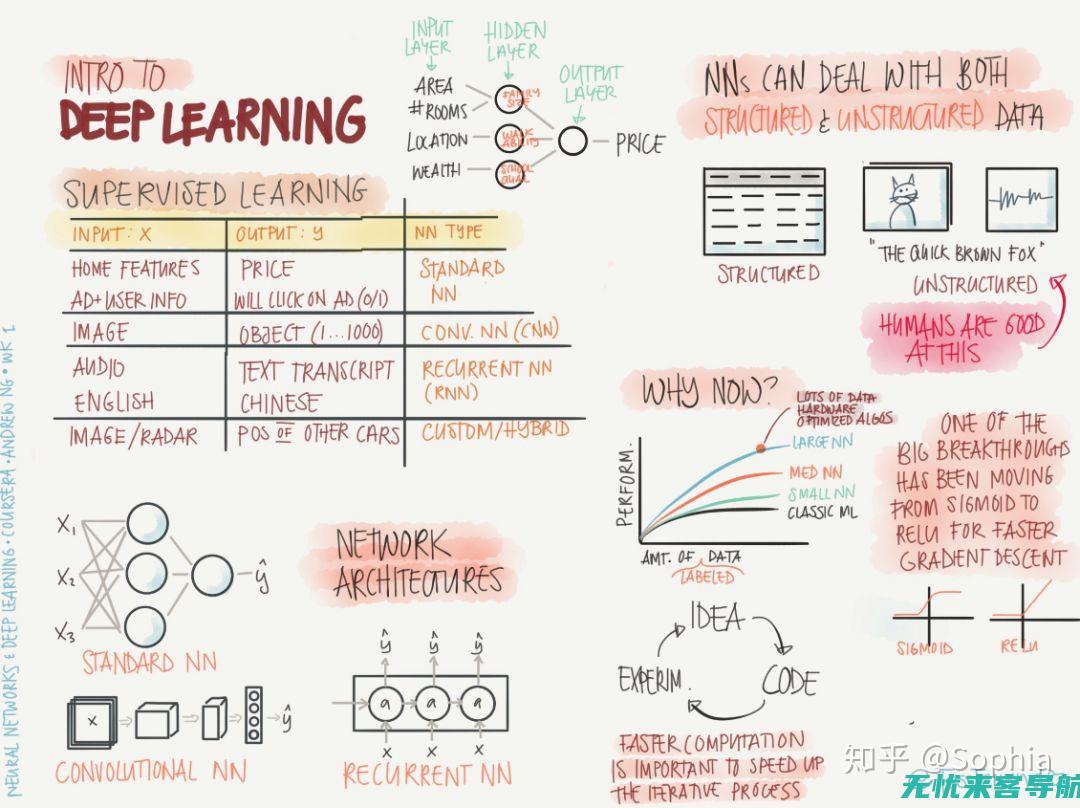 INTRO TO
DEEP LEARNING
INPUT
LAYER
HIDDEN
LAYER
OUTPUT
LAYER
AREA
#ROOMS
LOCATION
WEALTH
FAMILY
SIZE
WALK
ABILITY
SCHOOL
QUAL
PRICE
SUPERVISED LEARNING
INPUT: X OUTPUT: y NN TYPE
HOME FEATURES PRICE STANDARD
AD+USER INFO WILL CLICK ON AD (0/1) NN
IMAGE OBJECT (1...1000) CONV. NN (CNN)
AUDIO TEXT TRANSCRIPT RECURRENT NN
ENGLISH CHINESE (RNN)
IMAGE/RADAR POS OF OTHER CARS CUSTOM/HYBRID
NNs CAN DEAL WITH BOTH
STRUCTURED & UNSTRUCTURED DATA
STRUCTURED
"THE QUICK BROWN FOX"
UNSTRUCTURED
HUMANS ARE GOOD
AT THIS
WHY NOW?
LOTS OF DATA
HARDWARE
OPTIMIZED ALGOS
LARGE NN
MED NN
SMALL NN
CLASSIC ML
PERFORM.
AMT. OF DATA
LABELED
ONE OF THE
BIG BREAKTHROUGHS
HAS BEEN MOVING
FROM SIGMOID TO
RELU FOR FASTER
GRADIENT DESCENT
SIGMOID
RELU
X1
X2
X3
ŷ
STANDARD NN
X
ŷ
CONVOLUTIONAL NN
NETWORK
ARCHITECTURES
ŷ ŷ ŷ
a a a
X X X
RECURRENT NN
IDEA
EXPERIM.
CODE
FASTER COMPUTATION
IS IMPORTANT TO SPEED UP
THE ITERATIVE PROCESS
NEURAL NETWORKS & DEEP LEARNING • COURSERA • ANDREW NG • WK 1
知乎 @Sophia
无忧来客导航